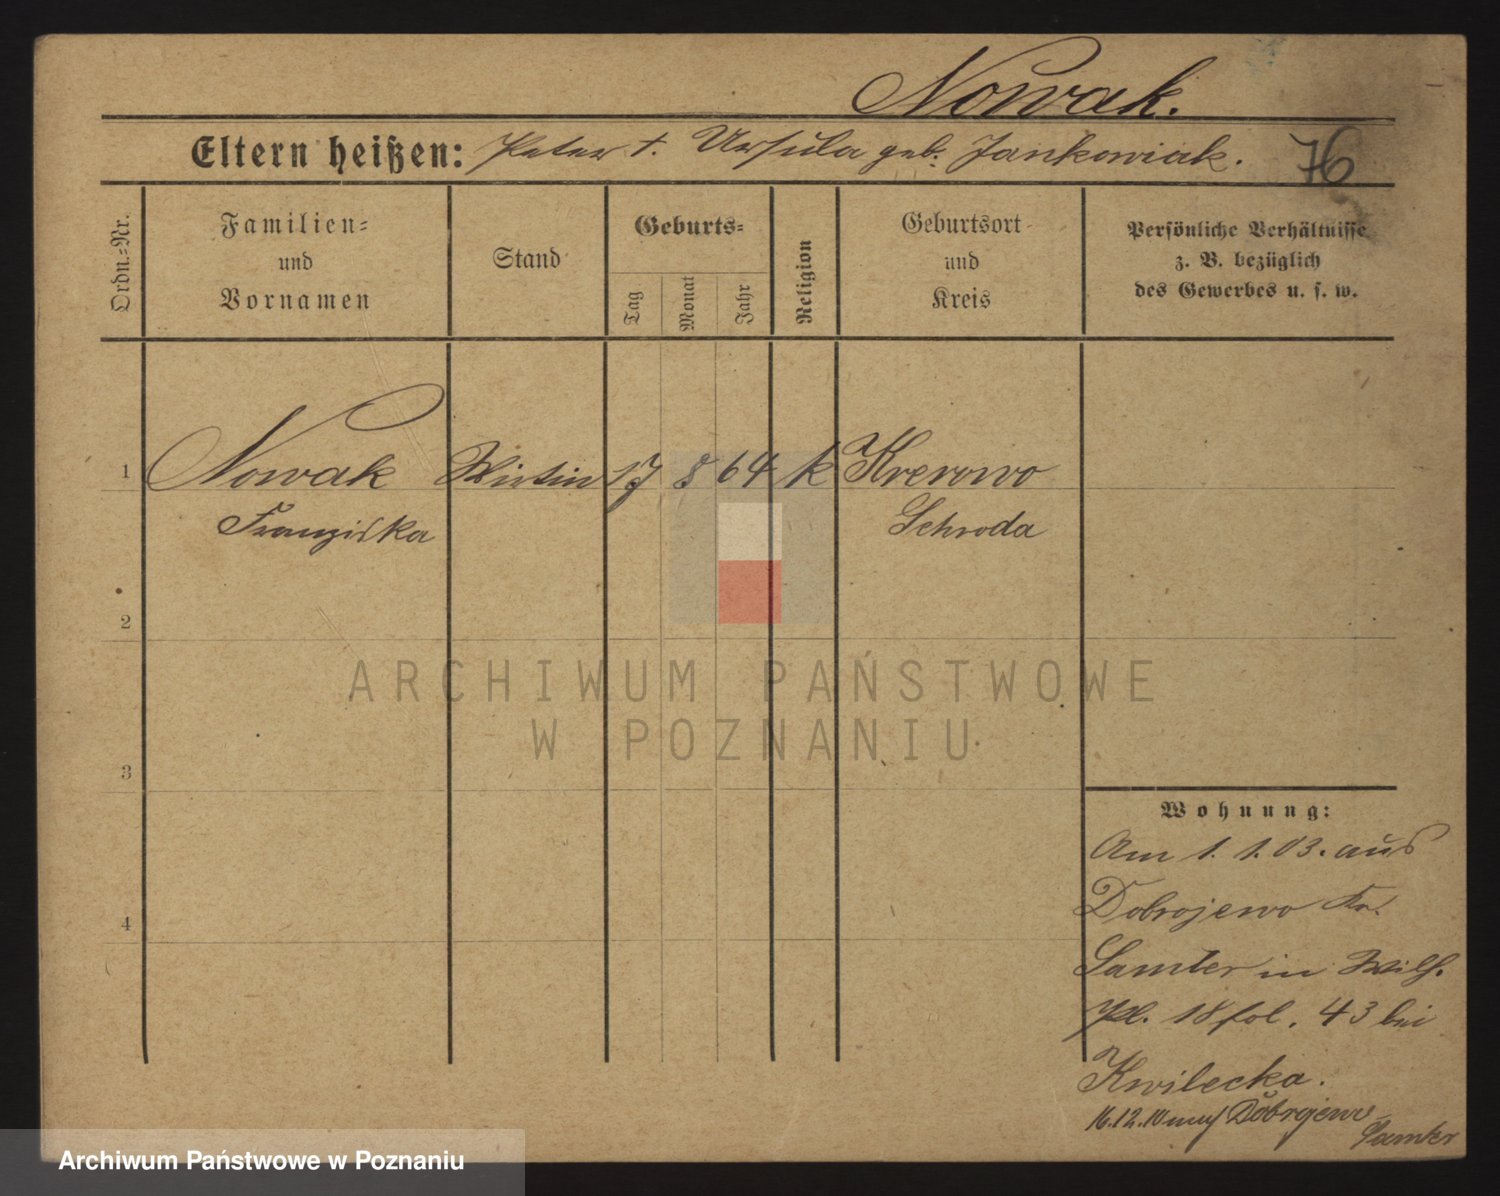 Nowak.
Eltern heißen: Peter t. Ursula geb. Jankowiak. 76
Ordn.-Nr.
Familien-
und
Vornamen
Stand
Geburts-
Tag
Monat
Jahr
Religion
Geburtsort
und
Kreis
Persönliche Verhältnisse
z. B. bezüglich
des Gewerbes u. s. w.
1 Nowak Wirtin 17 8 64 k Krerowo
Franziska Schroda
2
3
4
Wohnung:
Am 1. 1. 03. aus
Dobrojewo Kr.
Samter in Wilh.
Pl. 18 fol. 43 bei
Kwilecka.
16.12.10 nach Dobrojewo
Samter
ARCHIWUM PAŃSTWOWE
W POZNANIU
Archiwum Państwowe w Poznaniu